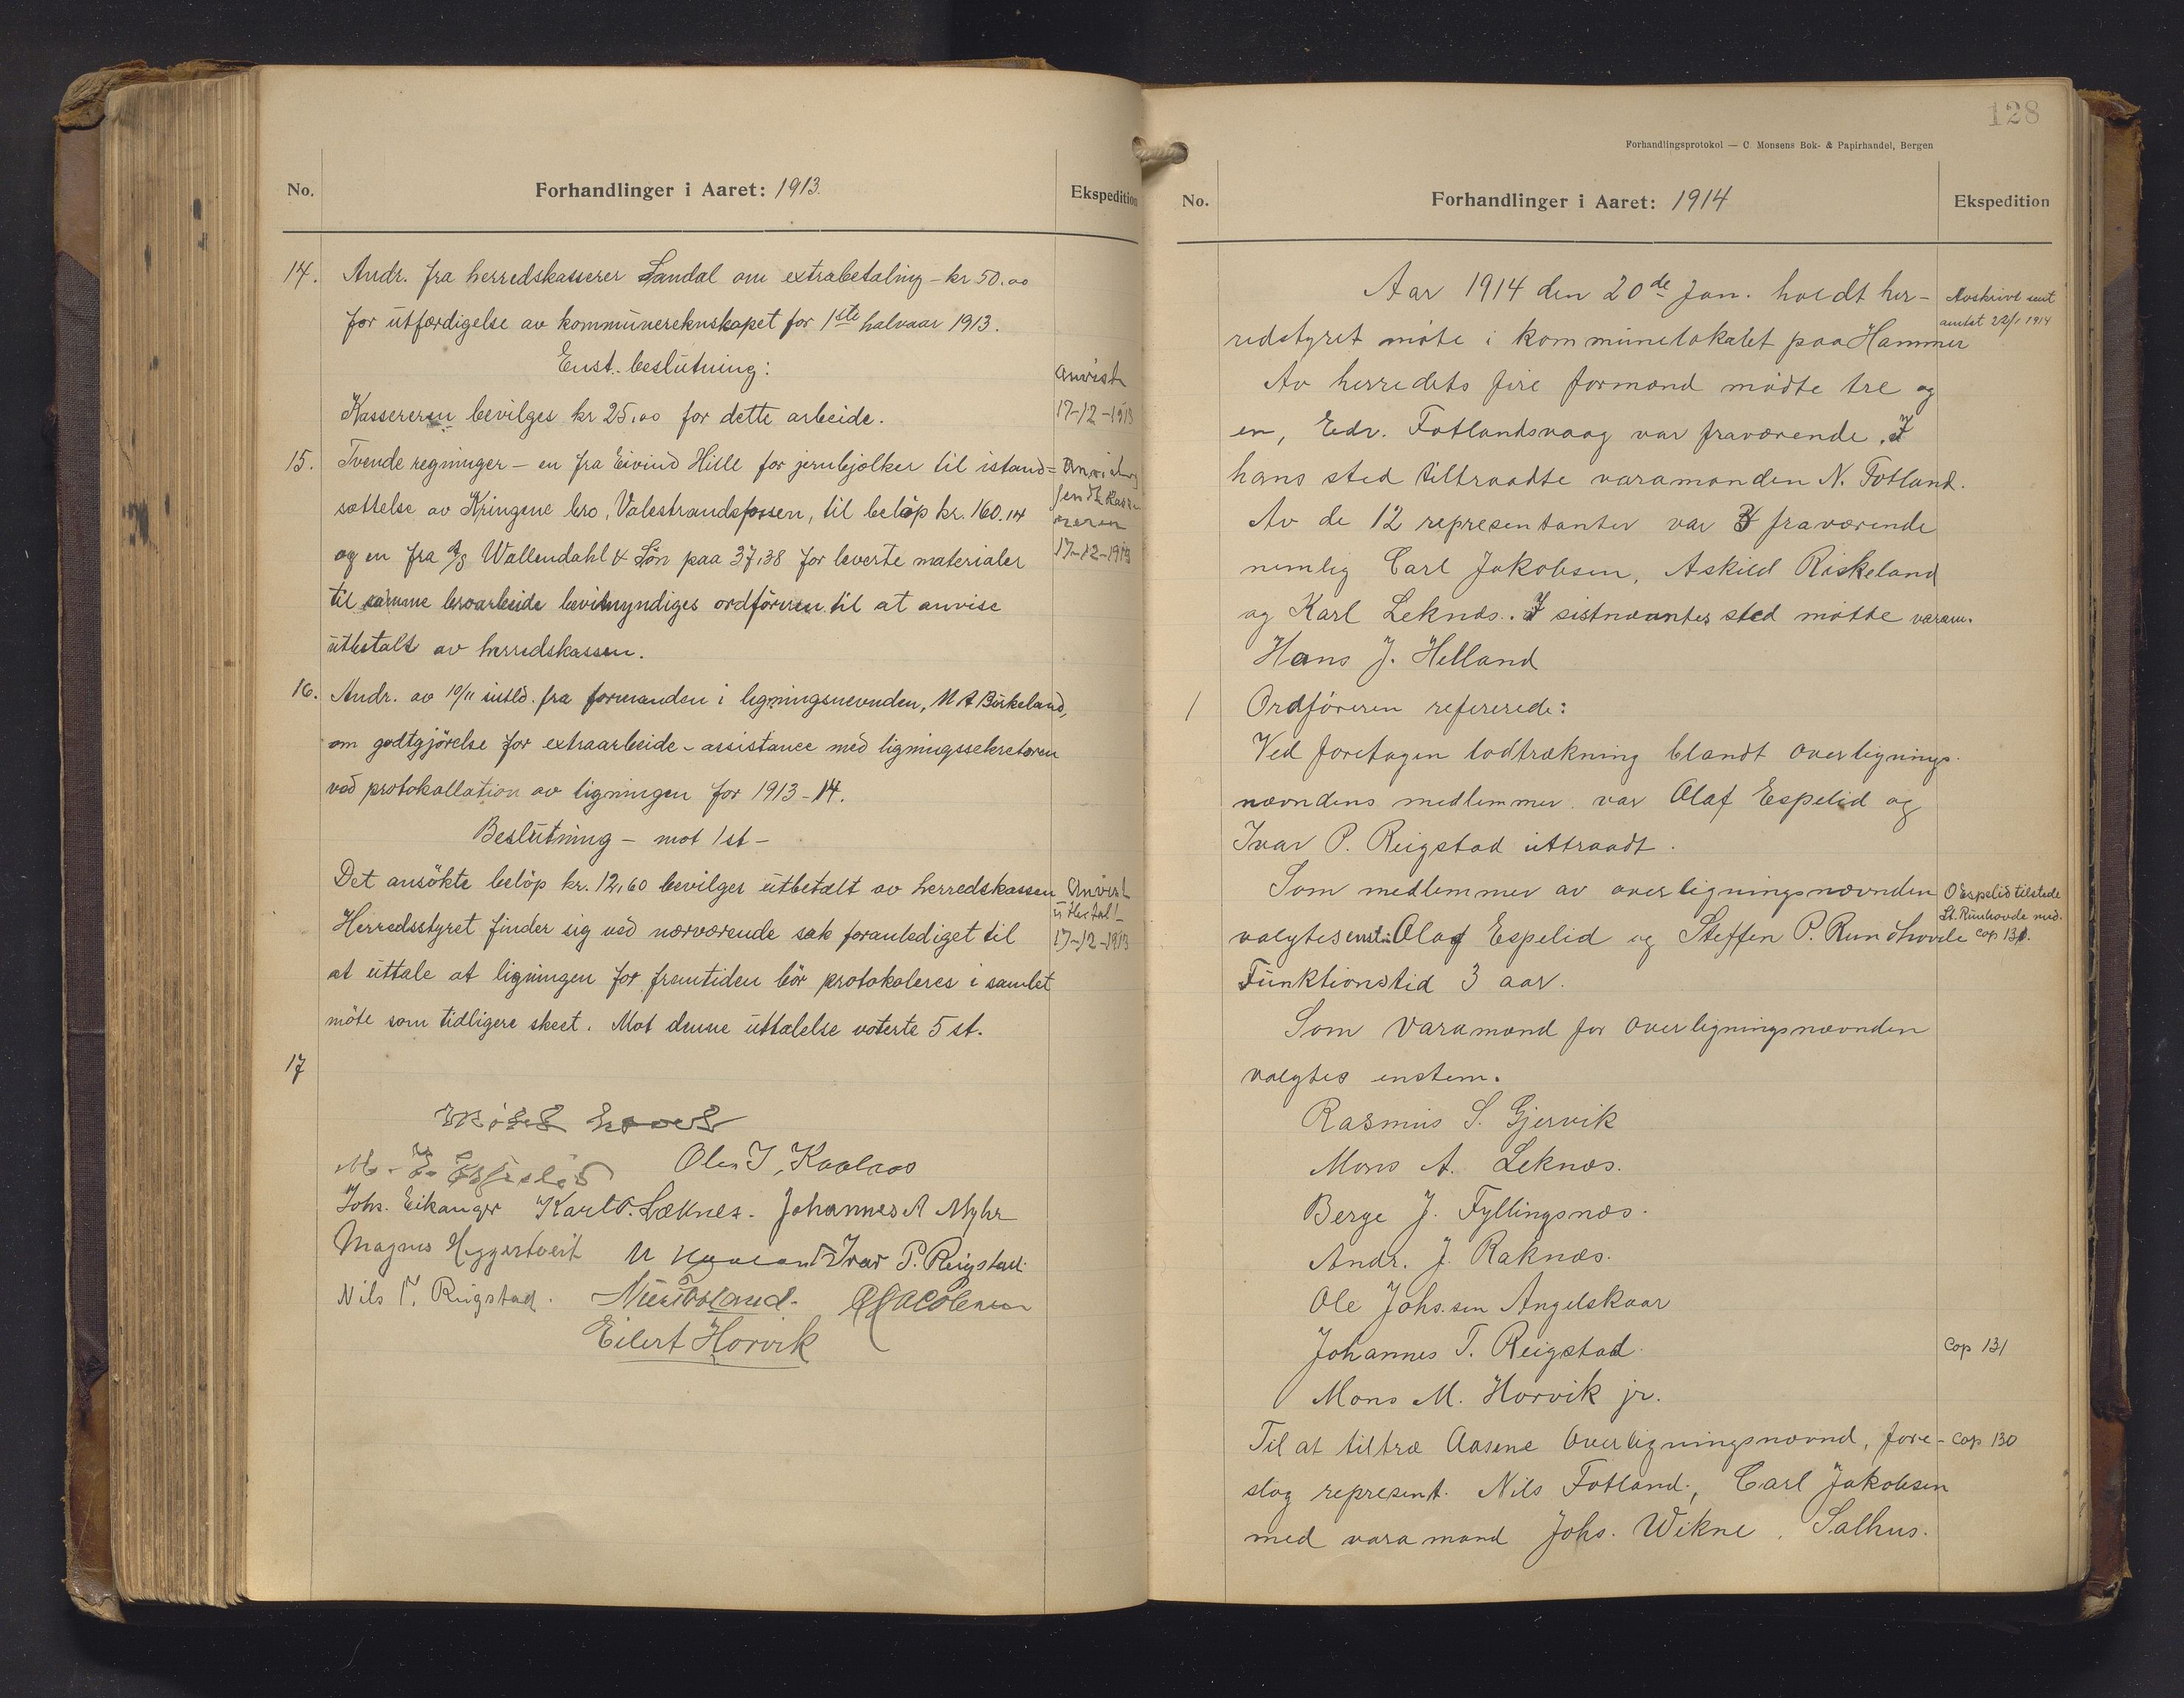 No.
Forhandlinger i Aaret: 1913.
Ekspedition
14. Andr. fra herredskasserer Landal om extrabetaling - kr 50.00
for utfærdigelse av kommunereknskapet for 1ste halvaar 1913.
Enst. beslutning:
Kassereren bevilges kr 25,00 for dette arbeide.
Anvist
17-12-1913
15. Tvende regninger - en fra Eivind Hille for jernbjolker til istand=
sættelse av Kringene bro, Valestrandsfossen, til beløp kr. 160.14
og en fra A/S Wallendahl & Søn paa 37,38 for leverte materialer
til samme broarbeide bevimyndiges ordføreren til at anvise
utbetalt av herredskassen.
17-12-1913
16. Andr. av 10/11 fra formanden i ligningsnevnden, M A Birkeland,
om godtgjørelse for extraarbeide - assistance med ligningssekretæren
ved protokollation av ligningen for 1913-14.
Beslutning - mot 1 st -
Det ansøkte beløp kr. 12,60 bevilges utbetalt av herredskassen
Herredsstyret finder sig ved nærværende sak foranlediget til
at uttale at ligningen for fremtiden bør protokoleres i samlet
møte som tidligere skeet. Mot denne uttalelse voterte 5 st.
Anvist
17-12-1913
17
Møtet hævet
Ole J. Kaalaas
Johs. Eikanger Karl O. Læknes. Johannes A Myhr
Magnus Heggertveit Ivar P. Reigstad.
Nils P. Reigstad.
Eilert Horvik
128
Forhandlingsprotokol — C. Monsens Bok- & Papirhandel, Bergen
No.
Forhandlinger i Aaret: 1914
Ekspedition
Aar 1914 den 20de Jan. holdt her-
redstyret møte i kommunelokalet paa Hammer
Avskrivt sent
amtet 22/1 1914
Av herredets fire formænd mødte tre og
en, Edv. Fotlandsvaag var fraværende. I
hans sted tiltraadte varamanden N. Fotland.
Av de 12 representanter var 3 fraværende
nemlig Carl Jakobsen, Askild Røskeland
og Karl Leknæs. I sistnævntes sted møtte varam.
Hans J. Helland
1 Ordføreren refererede:
Ved foretagen lodtrækning blandt overlignings-
nævndens medlemmer var Olaf Espelid og
Ivar P. Reigstad uttraadt.
Som medlemmer av overligningsnævnden
valgtes enst. Olaf Espelid og Steffen P. Rundhovde
Funktionstid 3 aar.
O Espelid tilstede
St. Runhovde med.
cop 131.
Som varamænd for overligningsnævnden
valgtes enstem.
Rasmus S. Gjervik
Mons A. Leknæs.
Berge J. Fyllingsnæs.
Andr. J. Raknæs.
Ole Johs.sen Angelskaar
Johannes T. Reigstad.
Cop 131
Mons M. Horvik jr.
Til at tiltræ Aasene Overligningsnævnd, fore-
Cop 130
slog represent. Nils Fotland, Carl Jakobsen
med varamand Johs. Wikne, Salhus.